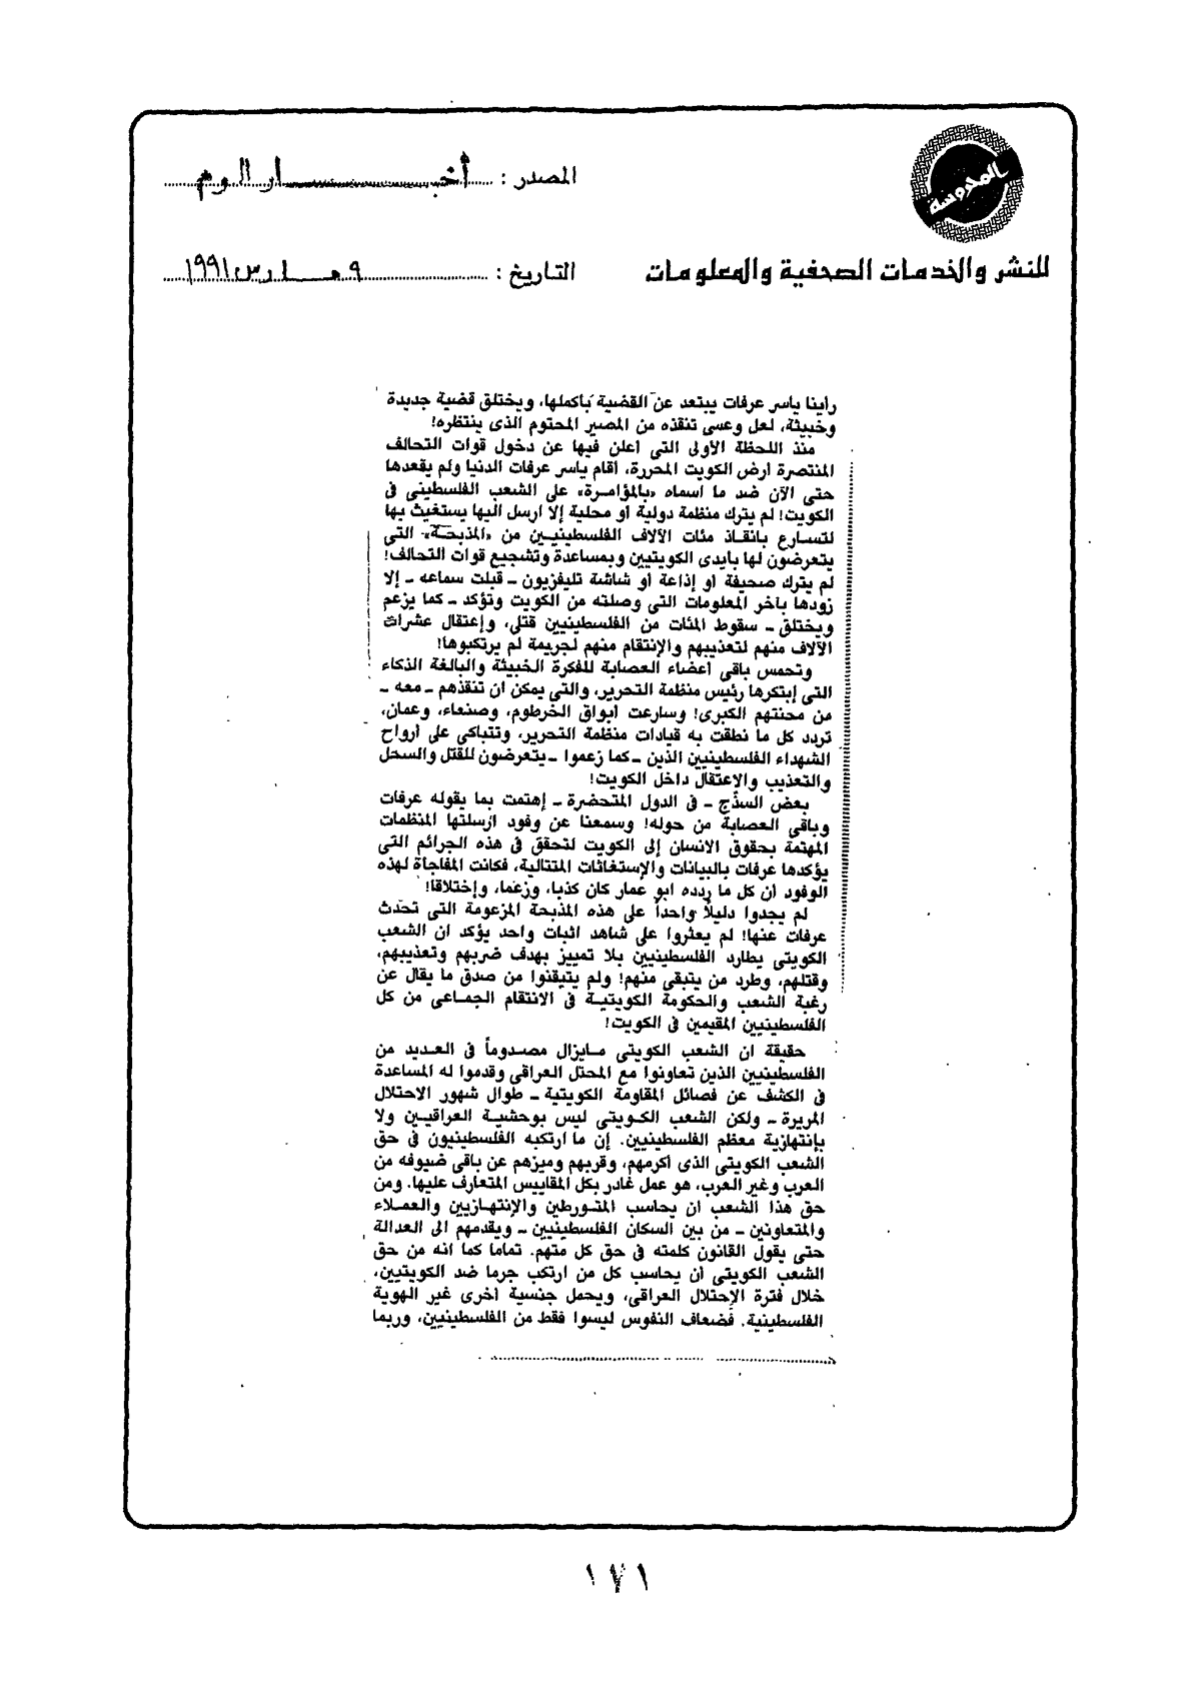 المحروسة
المصدر : أخبـــــــــار اليوم
للنشر والخدمات الصحفية والمعلومات
التاريخ : ٩ مـــارس ١٩٩١
رأينا ياسر عرفات يبتعد عن القضية بأكملها، ويختلق قضية جديدة
وخبيثة، لعل وعسى تنقذه من المصير المحتوم الذى ينتظره!
منذ اللحظة الأولى التى أعلن فيها عن دخول قوات التحالف
المنتصرة ارض الكويت المحررة، أقام ياسر عرفات الدنيا ولم يقعدها
حتى الآن ضد ما اسماه «بالمؤامرة» على الشعب الفلسطينى فى
الكويت! لم يترك منظمة دولية او محلية إلا ارسل اليها يستغيث بها
لتسارع بانقاذ مئات الآلاف الفلسطينيين من «المذبحة» التى
يتعرضون لها بايدى الكويتيين وبمساعدة وتشجيع قوات التحالف!
لم يترك صحيفة او إذاعة او شاشة تليفزيون ـ قبلت سماعه ـ إلا
زودها بآخر المعلومات التى وصلته من الكويت وتؤكد ـ كما يزعم
ويختلق ـ سقوط المئات من الفلسطينيين قتلى، وإعتقال عشرات
الآلاف منهم لتعذيبهم والإنتقام منهم لجريمة لم يرتكبوها!
وتحمس باقى أعضاء العصابة للفكرة الخبيثة والبالغة الذكاء
التى إبتكرها رئيس منظمة التحرير، والتى يمكن ان تنقذهم ـ معه ـ
من محنتهم الكبرى! وسارعت ابواق الخرطوم، وصنعاء، وعمان،
تردد كل ما نطقت به قيادات منظمة التحرير، وتتباكى على أرواح
الشهداء الفلسطينيين الذين ـ كما زعموا ـ يتعرضون للقتل والسحل
والتعذيب والاعتقال داخل الكويت!
بعض السذّج ـ فى الدول المتحضرة ـ إهتمت بما يقوله عرفات
وباقى العصابة من حوله! وسمعنا عن وفود ارسلتها المنظمات
المهتمة بحقوق الانسان إلى الكويت لتحقق فى هذه الجرائم التى
يؤكدها عرفات بالبيانات والإستغاثات المتتالية، فكانت المفاجأة لهذه
الوفود ان كل ما ردده ابو عمار كان كذبا، وزعما، وإختلاقا!
لم يجدوا دليلاً واحداً على هذه المذبحة المزعومة التى تحدث
عرفات عنها! لم يعثروا على شاهد اثبات واحد يؤكد ان الشعب
الكويتى يطارد الفلسطينيين بلا تمييز بهدف ضربهم وتعذيبهم،
وقتلهم، وطرد من يتبقى منهم! ولم يتيقنوا من صدق ما يقال عن
رغبة الشعب والحكومة الكويتية فى الانتقام الجماعى من كل
الفلسطينيين المقيمين فى الكويت!
حقيقة ان الشعب الكويتى مـايزال مصدوماً فى العديد من
الفلسطينيين الذين تعاونوا مع المحتل العراقى وقدموا له المساعدة
فى الكشف عن فصائل المقاومة الكويتية ـ طوال شهور الاحتلال
المريرة ـ ولكن الشعب الكـويتى ليس بوحشيـة العراقيـين ولا
بإنتهازية معظم الفلسطينيين. إن ما ارتكبه الفلسطينيون فى حق
الشعب الكويتى الذى أكرمهم، وقربهم وميزهم عن باقى ضيوفه من
العرب وغير العرب، هو عمل غادر بكل المقاييس المتعارف عليها. ومن
حق هذا الشعب ان يحاسب المتـورطين والإنتهـازيين والعمـلاء
والمتعاونين ـ من بين السكان الفلسطينيين ـ ويقدمهم الى العدالة
حتى يقول القانون كلمته فى حق كل متهم. تماما كما انه من حق
الشعب الكويتى أن يحاسب كل من ارتكب جرما ضد الكويتيين،
خلال فترة الإحتلال العراقى، ويحمل جنسية أخرى غير الهوية
الفلسطينية. فضعاف النفوس ليسوا فقط من الفلسطينيين، وربما
١٧١